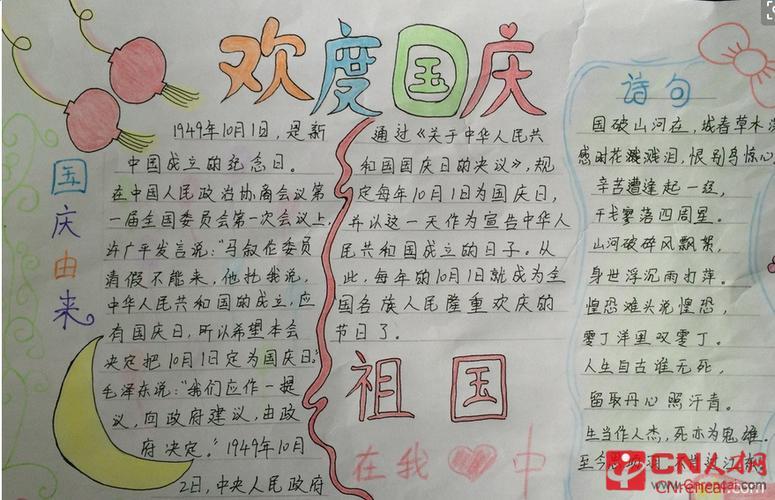 欢度国庆
国庆由来
1949年10月1日，是新
中国成立的纪念日。
在中国人民政治协商会议第
一届全国委员会第一次会议上，
许广平发言说："马叙伦委员
请假不能来，他托我说，
中华人民共和国的成立，应
有国庆日，所以希望本会
决定把10月1日定为国庆日。"
毛泽东说："我们应作一提
议，向政府建议，由政
府决定。"1949年10月
2日，中央人民政府
通过《关于中华人民共
和国国庆日的决议》，规
定每年10月1日为国庆日，
并以这一天作为宣告中华人
民共和国成立的日子。从
此，每年的10月1日就成为全
国各族人民隆重欢庆的
节日了。
祖国
在我❤中
诗句
国破山河在，城春草木深
感时花溅泪，恨别鸟惊心
辛苦遭逢起一经，
干戈寥落四周星。
山河破碎风飘絮，
身世浮沉雨打萍。
惶恐滩头说惶恐，
零丁洋里叹零丁。
人生自古谁无死，
留取丹心照汗青。
生当作人杰，死亦为鬼雄。
至今思项羽
CN人才网
CNrencai.com